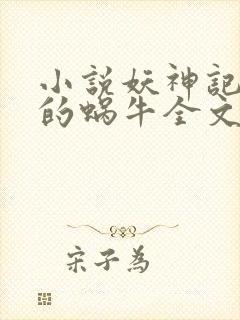 小説妖神記
的蝸牛全文
宋子為